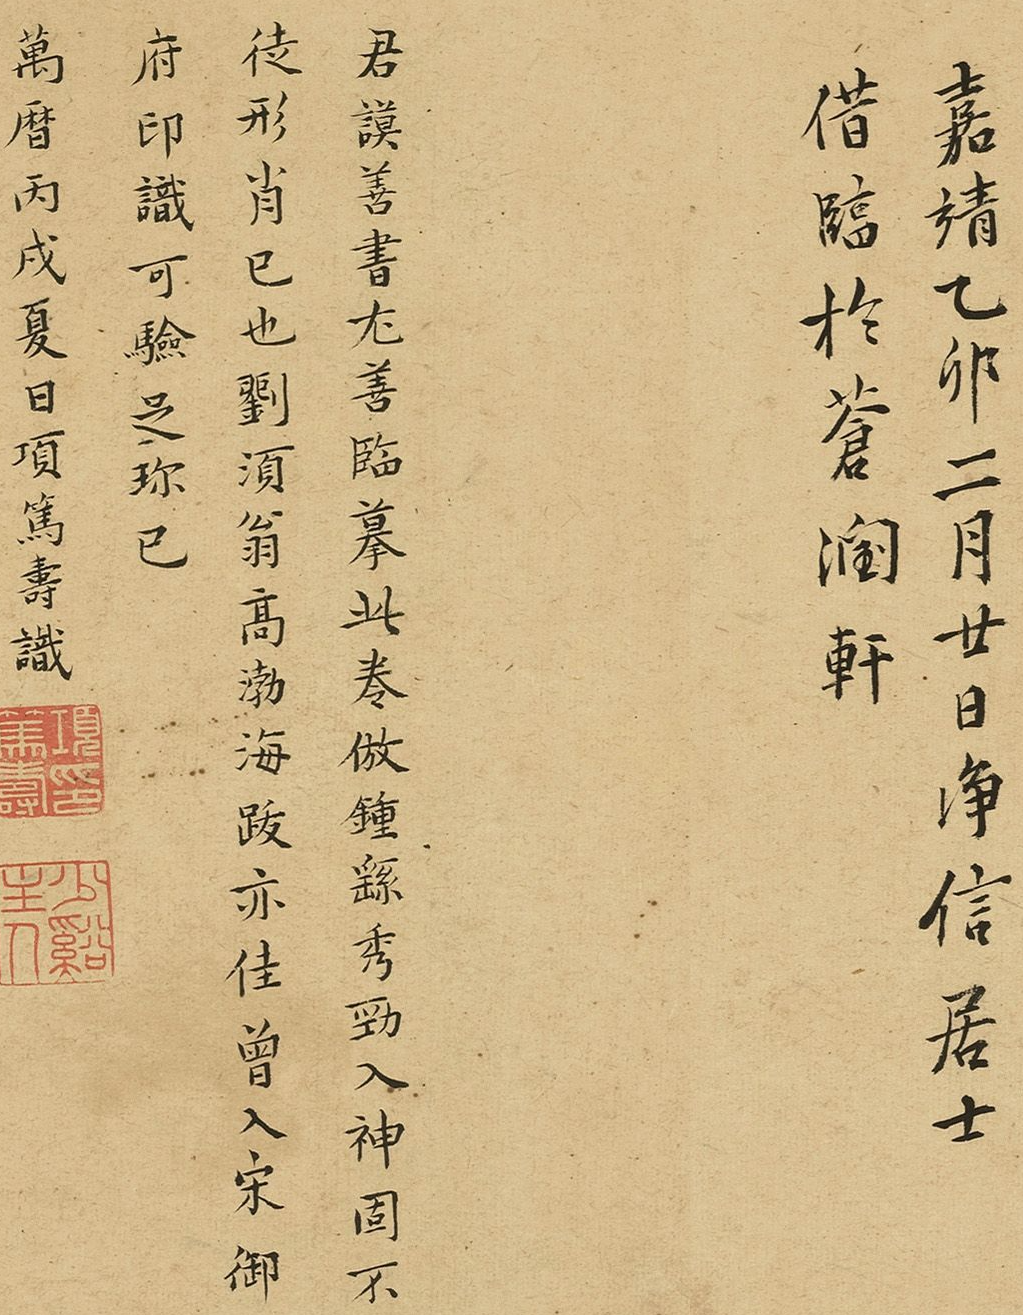 嘉靖乙卯二月廿日净信居士
借臨於蒼潤軒
君謨善書尤善臨摹此卷倣鍾繇秀勁入神固不
徒形肖已也劉須翁高渤海跋亦佳曾入宋御
府印識可驗足珎已
萬曆丙戌夏日項篤壽識
項篤壽印
少谿主人